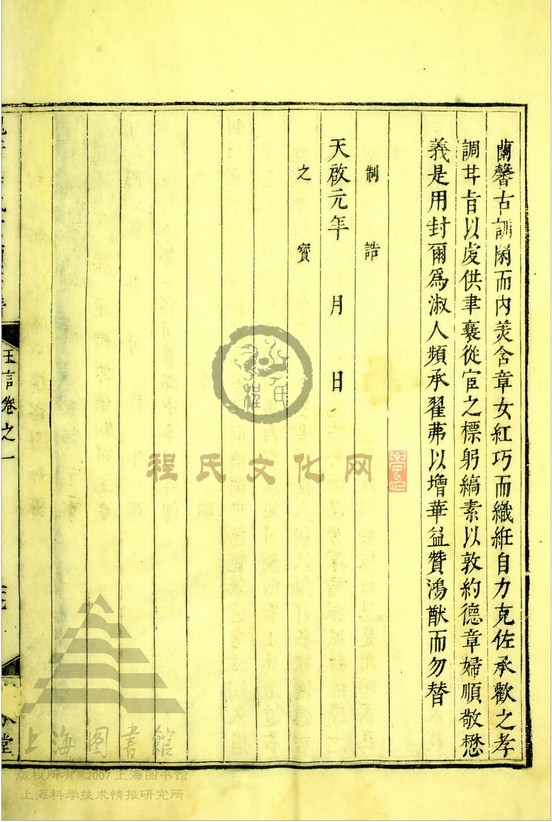 蘭馨古訓閑而内美含章女紅巧而織紝自力克佐承歡之孝
調甘旨以虔供聿襄從宦之標躬縞素以敦約德章婦順敬懋
義是用封爾為淑人頻承翟茀以增華益贊鴻猷而勿替
制誥
天啟元年 月 日
之寶
王言卷之一
堂
程氏文化网
上海图书馆
版权所有©2007上海图书馆
上海科学技术情报研究所